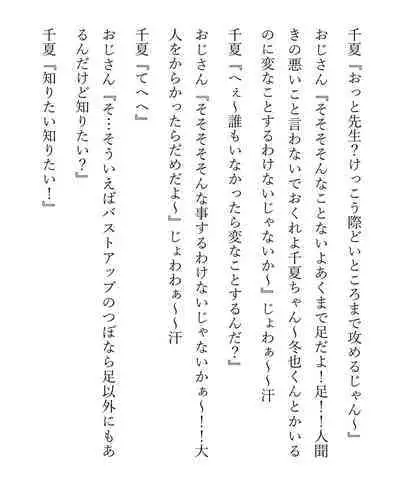 千夏『おっと先生？けっこう際どいところまで攻めるじゃん〜』
おじさん『そそそそんなことないよあくまで足だよ！足！！人聞
きの悪いこと言わないでおくれよ千夏ちゃん〜冬也くんとかいる
のに変なことするわけないじゃないか〜』じょわぁ〜〜汗
千夏『へぇ〜誰もいなかったら変なことするんだ？』
おじさん『そそそそそんな事するわけないじゃないかぁ〜！！大
人をからかったらだめだよ〜』じょわわぁ〜〜汗
千夏『てへへ』
おじさん『そ…そういえばバストアップのつぼなら足以外にもあ
るんだけど知りたい？』
千夏『知りたい知りたい！』